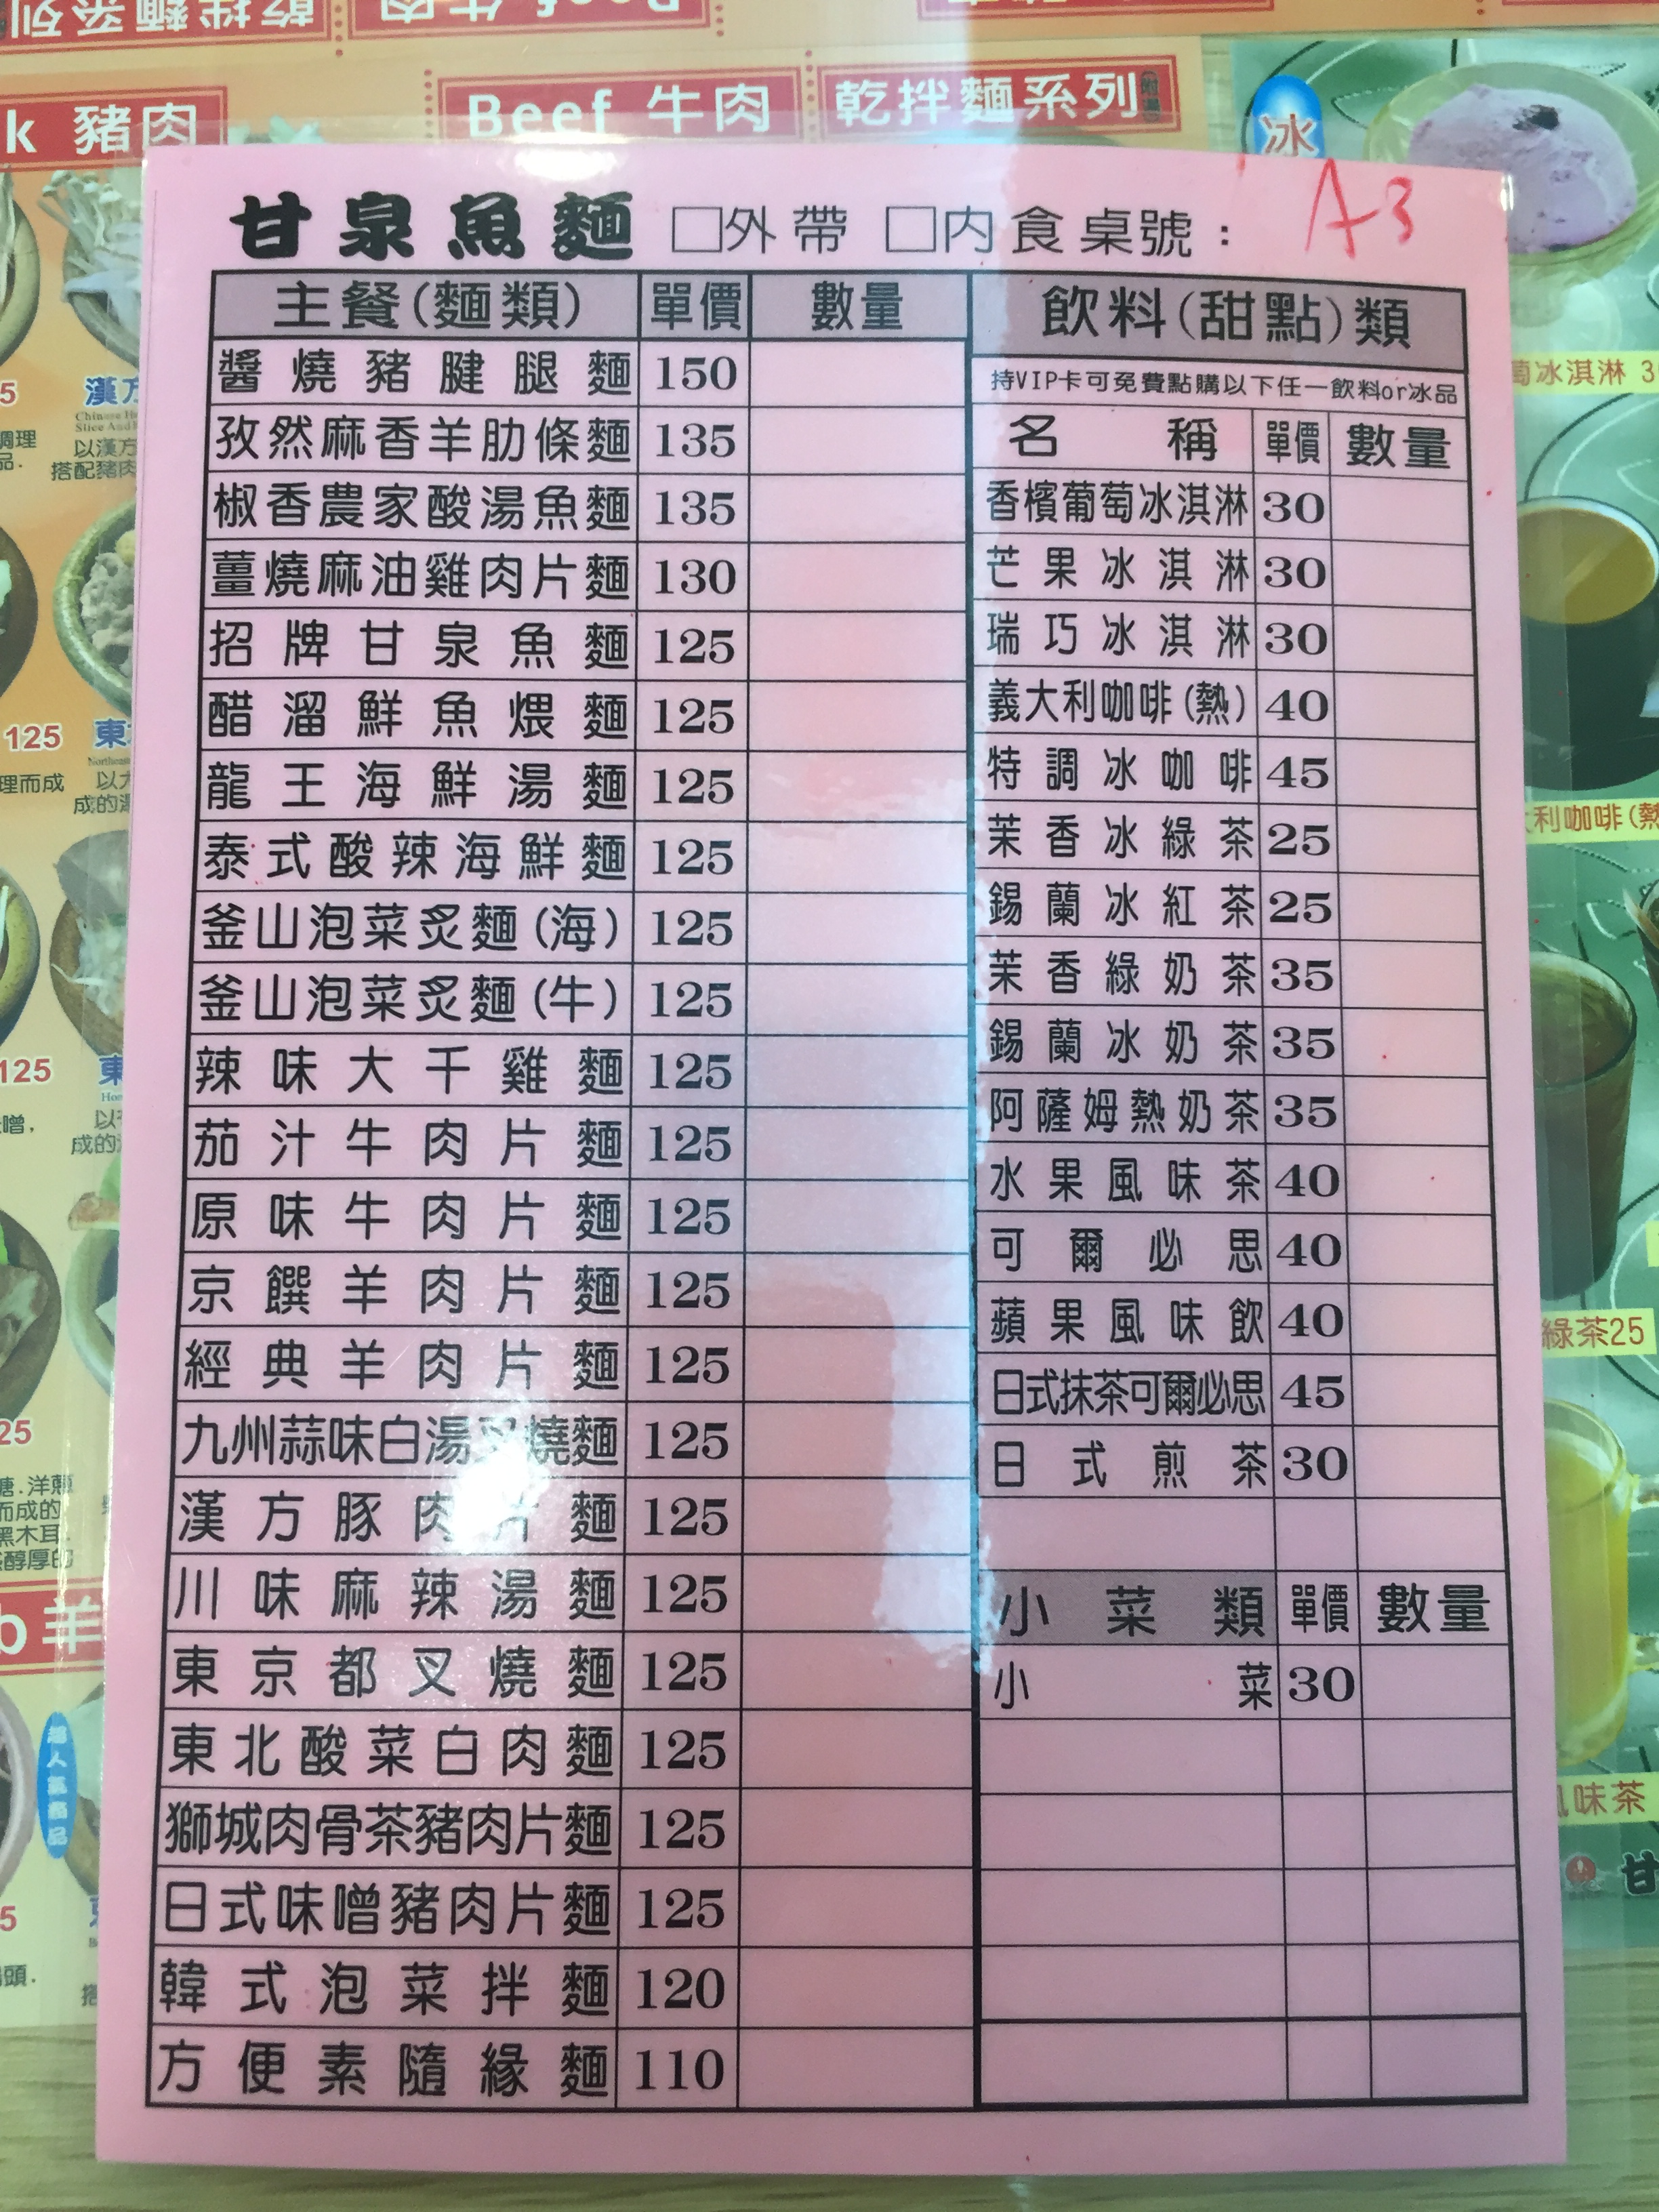 乾拌麵系列
Beef 牛肉
k 豬肉
Beef 牛肉
乾拌麵系列
冰
甘泉魚麵 □外帶 □內食桌號： A3
主餐(麵類) 單價 數量
醬燒豬腱腿麵 150
孜然麻香羊肋條麵 135
椒香農家酸湯魚麵 135
薑燒麻油雞肉片麵 130
招牌甘泉魚麵 125
醋溜鮮魚煨麵 125
龍王海鮮湯麵 125
泰式酸辣海鮮麵 125
釜山泡菜炙麵(海) 125
釜山泡菜炙麵(牛) 125
辣味大千雞麵 125
茄汁牛肉片麵 125
原味牛肉片麵 125
京饌羊肉片麵 125
經典羊肉片麵 125
九州蒜味白湯叉燒麵 125
漢方豚肉片麵 125
川味麻辣湯麵 125
東京都叉燒麵 125
東北酸菜白肉麵 125
獅城肉骨茶豬肉片麵 125
日式味噌豬肉片麵 125
韓式泡菜拌麵 120
方便素隨緣麵 110
飲料(甜點)類
持VIP卡可免費點購以下任一飲料or冰品
名稱 單價 數量
香檳葡萄冰淇淋 30
芒果冰淇淋 30
瑞巧冰淇淋 30
義大利咖啡(熱) 40
特調冰咖啡 45
茉香冰綠茶 25
錫蘭冰紅茶 25
茉香綠奶茶 35
錫蘭冰奶茶 35
阿薩姆熱奶茶 35
水果風味茶 40
可爾必思 40
蘋果風味飲 40
日式抹茶可爾必思 45
日式煎茶 30
小菜類 單價 數量
小菜 30
萄冰淇淋 3
利咖啡(熱
綠茶25
味茶
甘
漢方
以漢方
搭配豬肉
125
理而成
成的
125
25
糖.洋蔥
而成的
黑木耳
醇厚的
b 羊